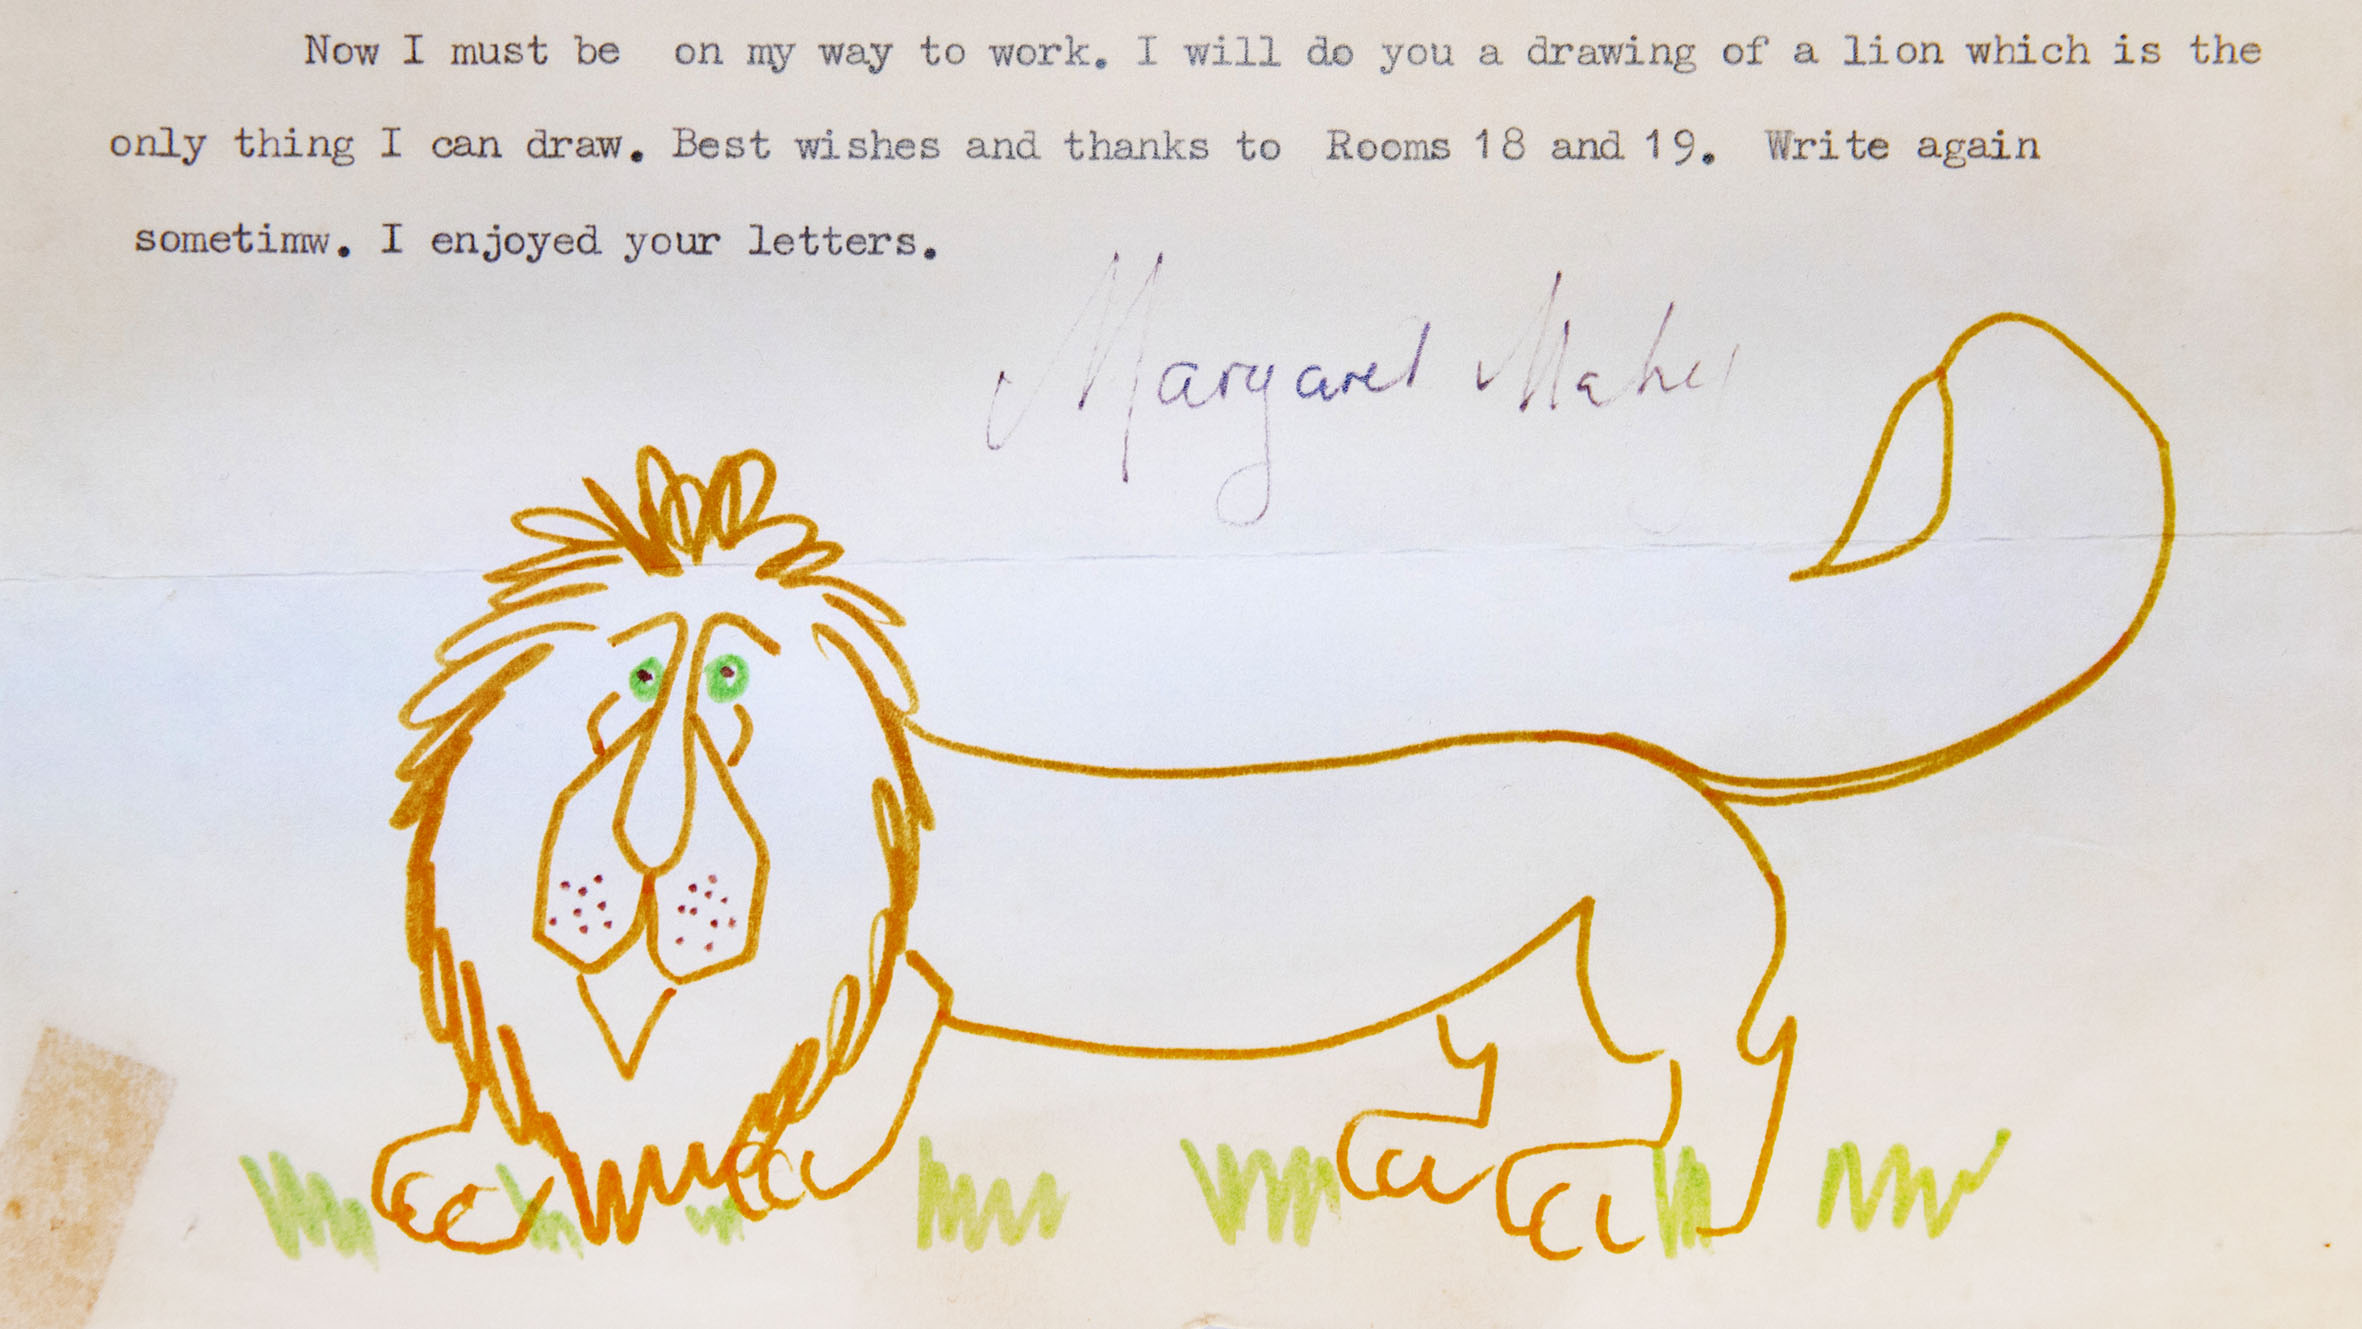 Now I must be on my way to work. I will do you a drawing of a lion which is the
only thing I can draw. Best wishes and thanks to Rooms 18 and 19. Write again
sometimw. I enjoyed your letters.
Margaret Mahy